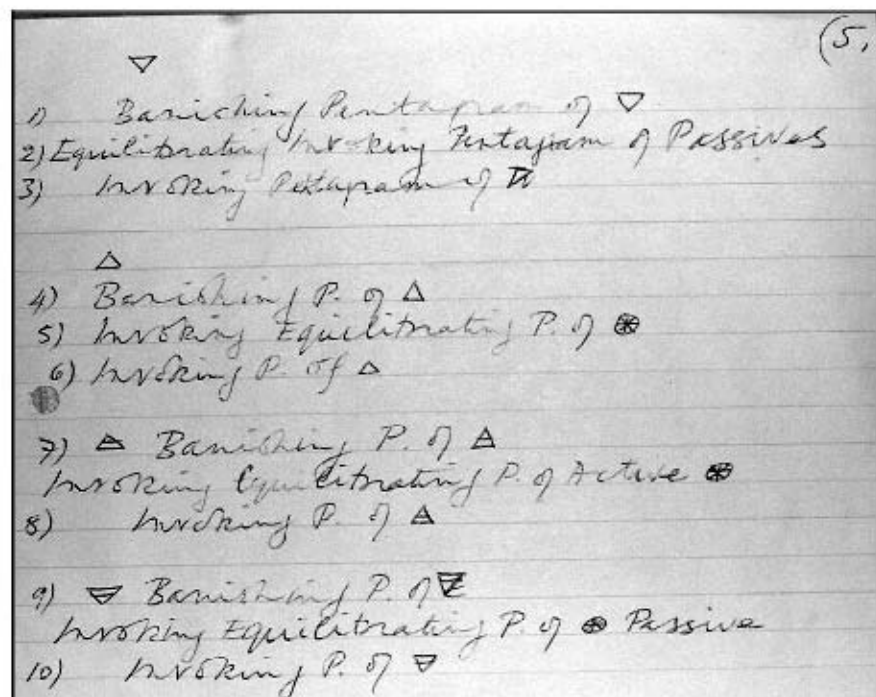 (5,
▽
1) Banishing Pentagram of ▽
2) Equilibrating Invoking Pentagram of Passives
3) Invoking Pentagram of
△
4) Banishing P. of △
5) Invoking Equilibrating P. of ⊛
6) Invoking P. of △
7) 🜁 Banishing P. of 🜁
Invoking Equilibrating P. of Active ⊛
8) Invoking P. of 🜁
9) 🜃 Banishing P. of 🜃
Invoking Equilibrating P. of ⊛ Passive
10) Invoking P. of 🜃